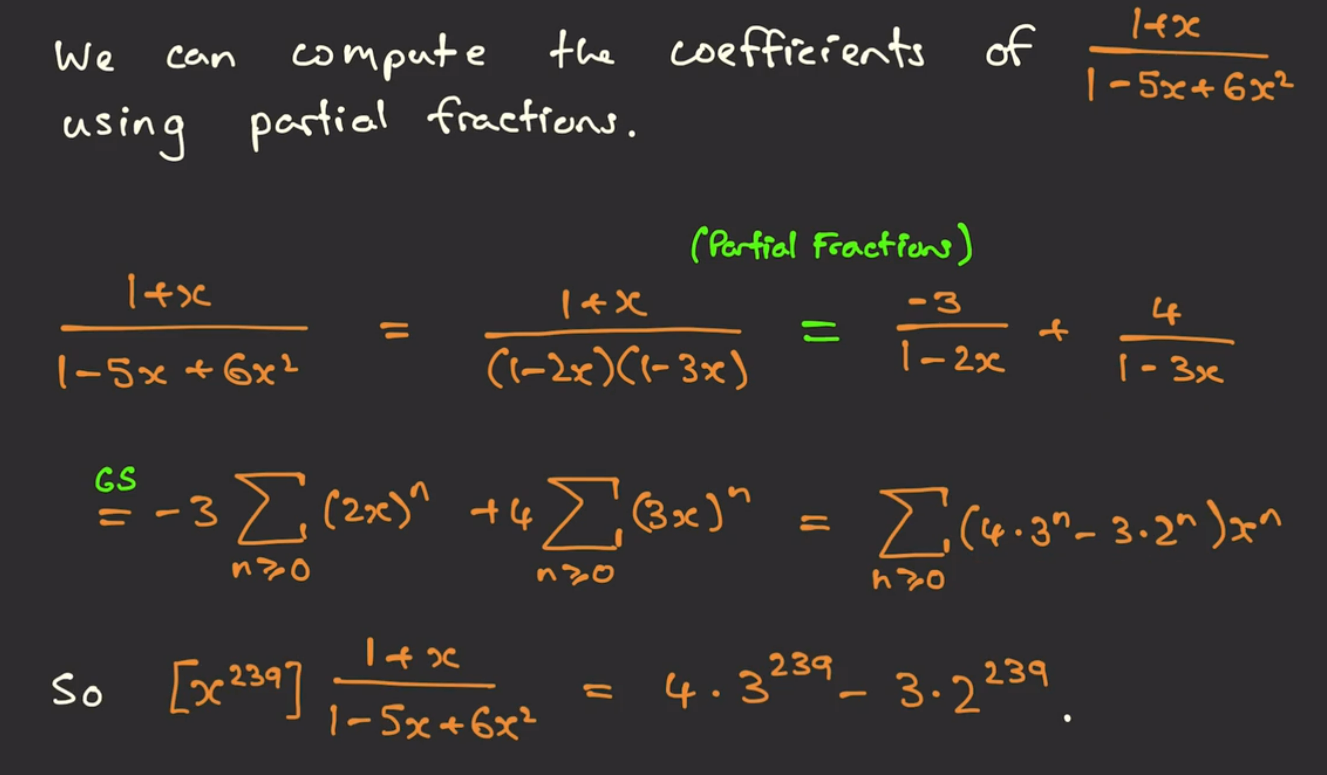 We can compute the coefficients of (1+x)/(1-5x+6x²)
using partial fractions.
(Partial Fractions)
(1+x)/(1-5x+6x²) = (1+x)/((1-2x)(1-3x)) = -3/(1-2x) + 4/(1-3x)
GS
= -3 ∑_{n≥0} (2x)ⁿ + 4 ∑_{n≥0} (3x)ⁿ = ∑_{n≥0} (4·3ⁿ - 3·2ⁿ)xⁿ
So [x²³⁹] (1+x)/(1-5x+6x²) = 4·3²³⁹ - 3·2²³⁹.